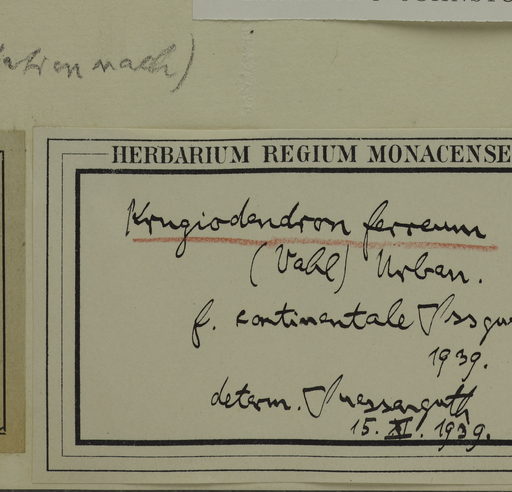 nach)
HERBARIUM REGIUM MONACENSE
Krugiodendron ferreum
(Vahl) Urban.
f. continentale Sssgu
1939.
determ. Suessenguth
15. XI. 1939.